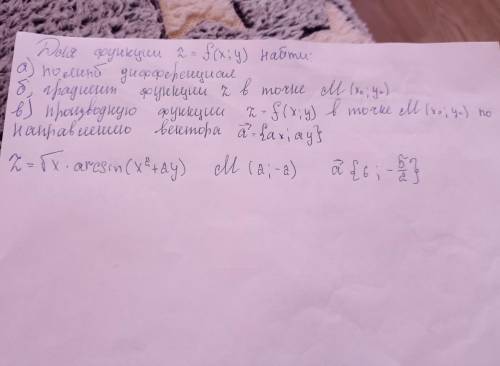 Для функции z = f(x; y) найти:
а) полный дифференциал
б) градиент функции z в точке M (x₀; y₀)
в) производную функции z = f(x; y) в точке M (x₀; y₀) по
направлению вектора a⃗ = {ax; ay}
z = √x · arcsin(x² + 2y) M (2; -2) a⃗ {6; -5/2}